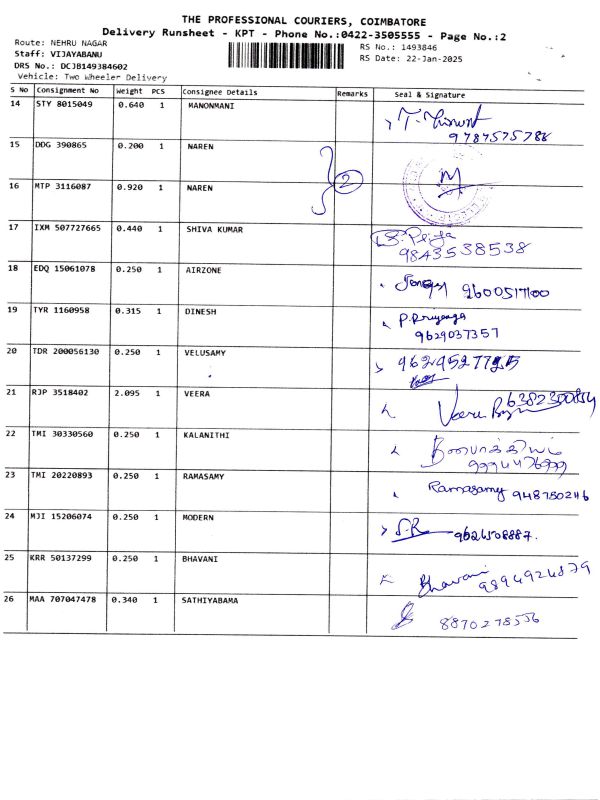 THE PROFESSIONAL COURIERS, COIMBATORE
Delivery Runsheet - KPT - Phone No.:0422-3505555 - Page No.:2
Route: NEHRU NAGAR
RS No.: 1493846
Staff: VIJAYABANU
RS Date: 22-Jan-2025
DRS No.: DCJB149384602
Vehicle: Two Wheeler Delivery
S No Consignment No Weight PCS Consignee Details Remarks Seal & Signature
14 STY 8015049 0.640 1 MANONMANI
15 DDG 390865 0.200 1 NAREN
2
16 MTP 3116087 0.920 1 NAREN
17 IXM 507727665 0.440 1 SHIVA KUMAR
9843538538
18 EDQ 15061078 0.250 1 AIRZONE
9600517100
19 TYR 1160958 0.315 1 DINESH
9629037357
20 TDR 200056130 0.250 1 VELUSAMY
21 RJP 3518402 2.095 1 VEERA
22 TMI 30330560 0.250 1 KALANITHI
23 TMI 20220893 0.250 1 RAMASAMY
Ramasamy 948750246
24 MJI 15206074 0.250 1 MODERN
S.R
25 KRR 50137299 0.250 1 BHAVANI
Bhavani 9894924879
26 MAA 707047478 0.340 1 SATHIYABAMA
8870278556